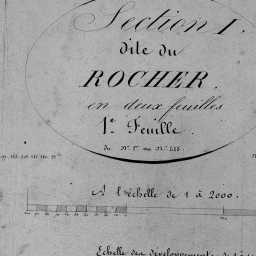 Section I.
dite du
ROCHER.
en deux feuilles
1e Feuille.
du N° 1er au N°
A l'échelle de 1 à 2000.
Echelle des développements de 1 à